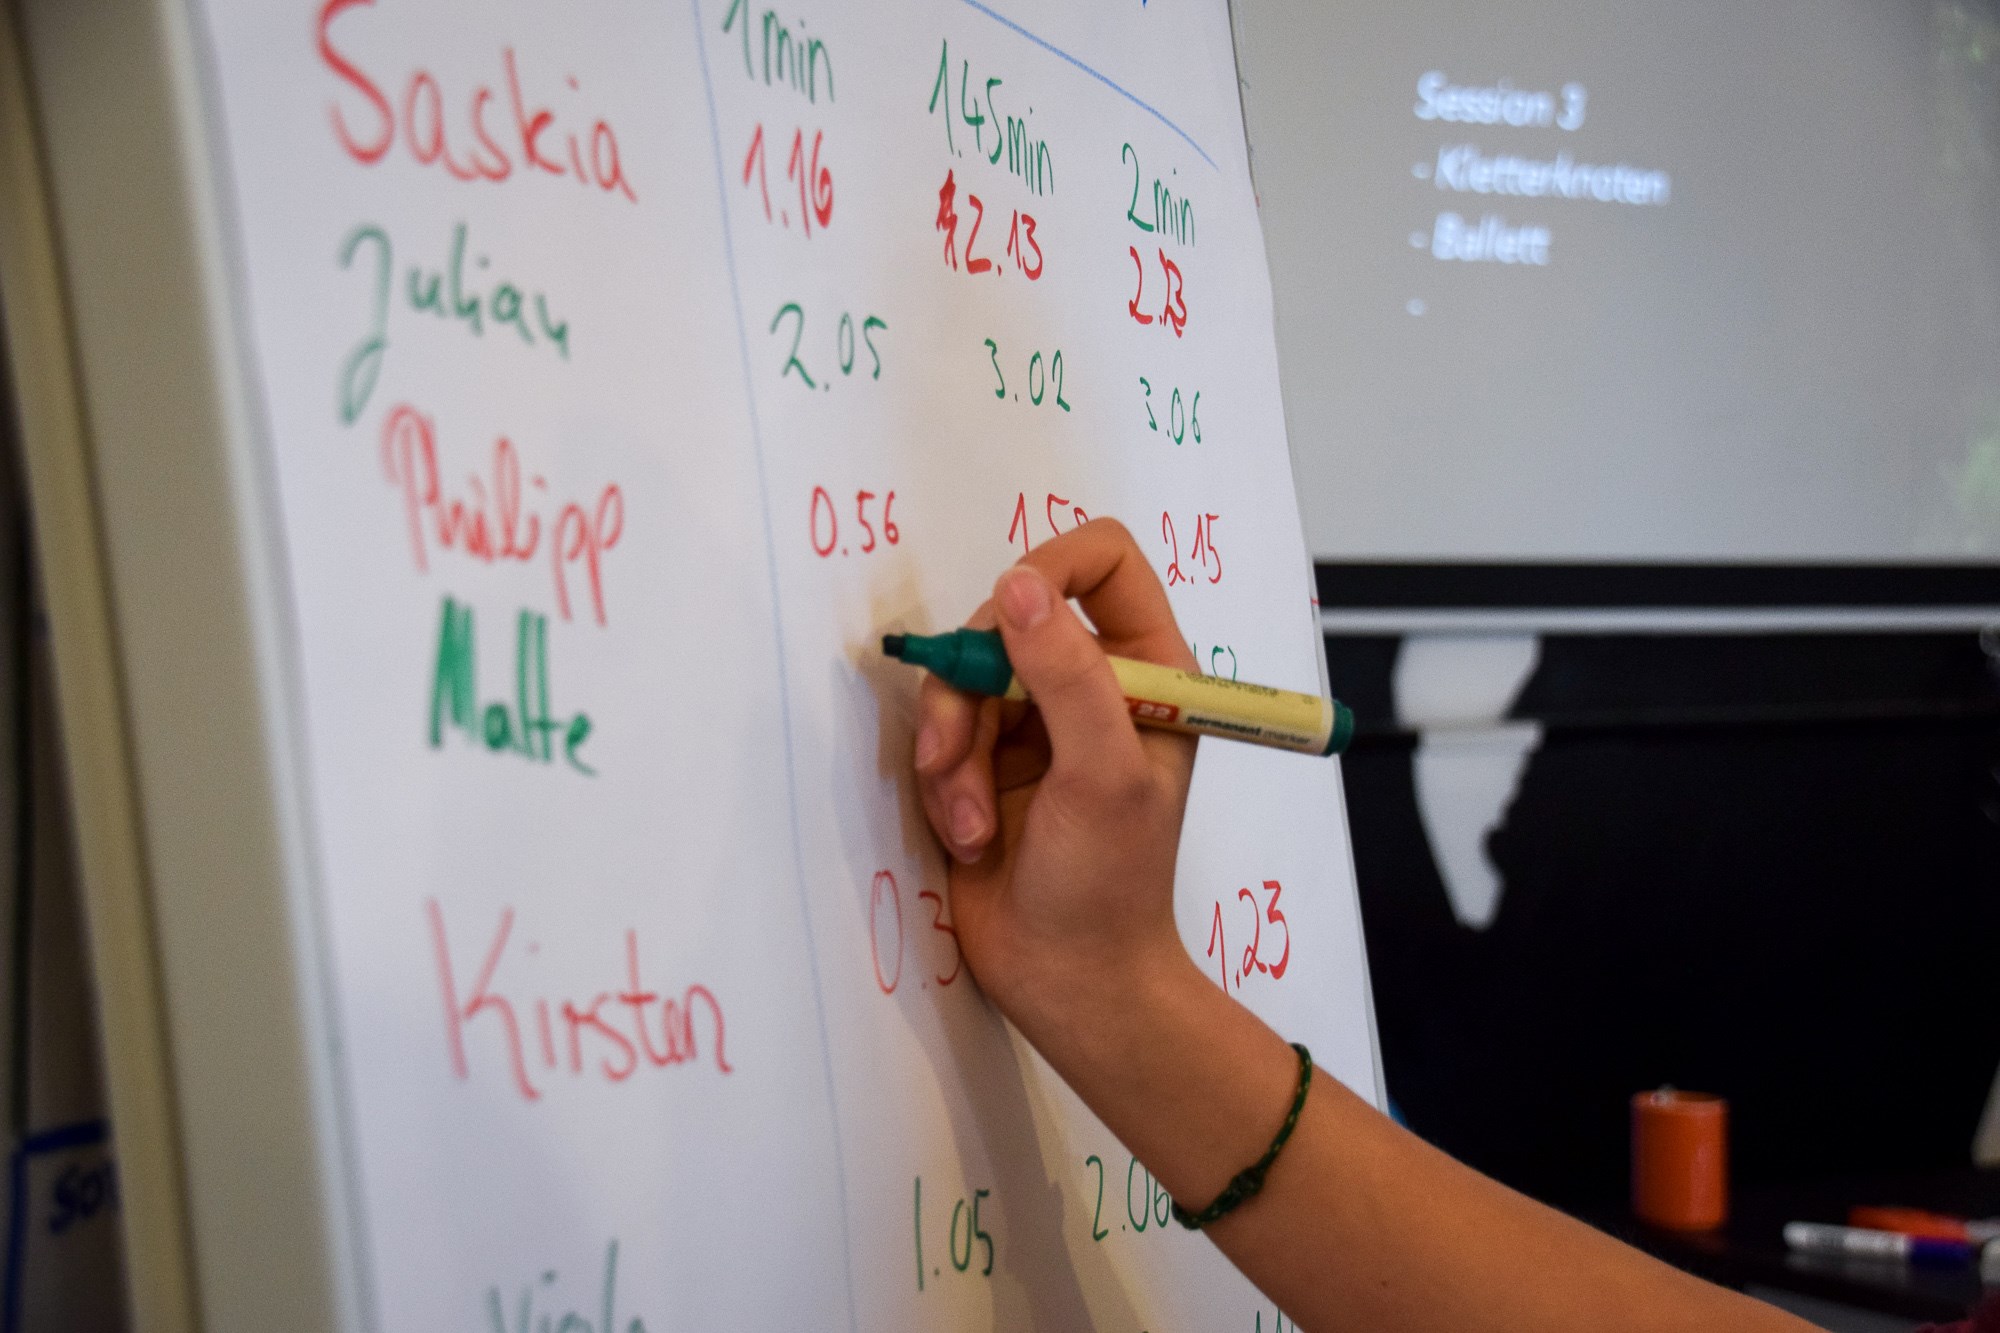 1min 1.45min 2min
Saskia 1.16 2.13 2.23
Julian 2.05 3.02 3.06
Philipp 0.56 2.15
Malte
Kirsten 0.3 1.23
1.05 2.06
Viola
Session 3
- Kletterknoten
- Ballett
-
22 permanent marker